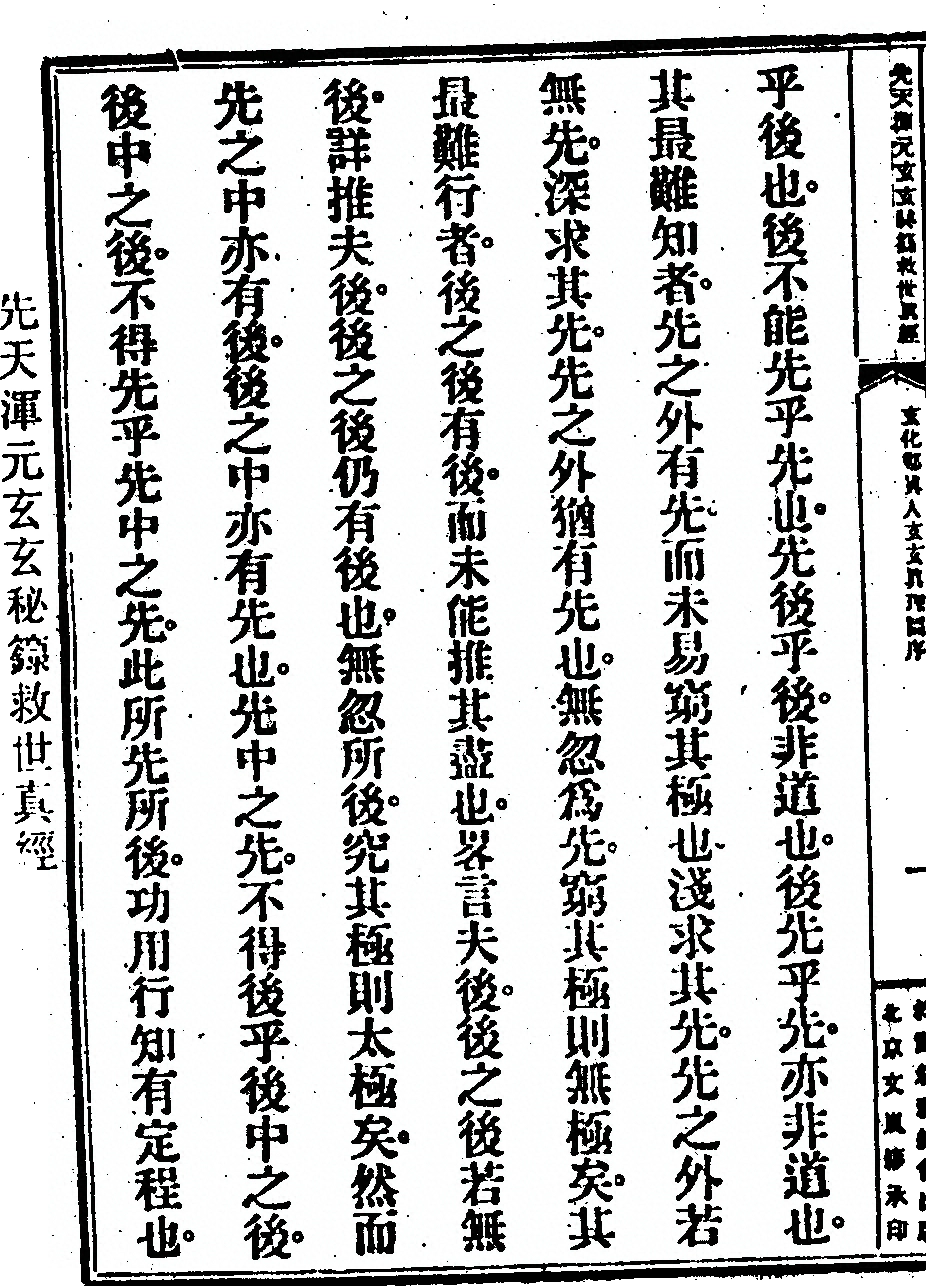 先天渾元玄玄秘籙救世眞經
玄化
人玄玄
序
一
北京文嵐簃承印
乎後也。後不能先乎先也。先後乎後。非道也。後先乎先。亦非道也。
其最難知者。先之外有先。而未易窮其極也。淺求其先。先之外若
無先。深求其先。先之外猶有先也。無忽爲先。窮其極則無極矣。其
最難行者。後之後有後。而未能推其盡也。畧言夫後。後之後若無
後。詳推夫後。後之後仍有後也。無忽所後。究其極則太極矣。然而
先之中亦有後。後之中亦有先也。先中之先。不得後乎後中之後。
後中之後。不得先乎先中之先。此所先所後。功用行知有定程也。
先天渾元玄玄秘籙救世真經